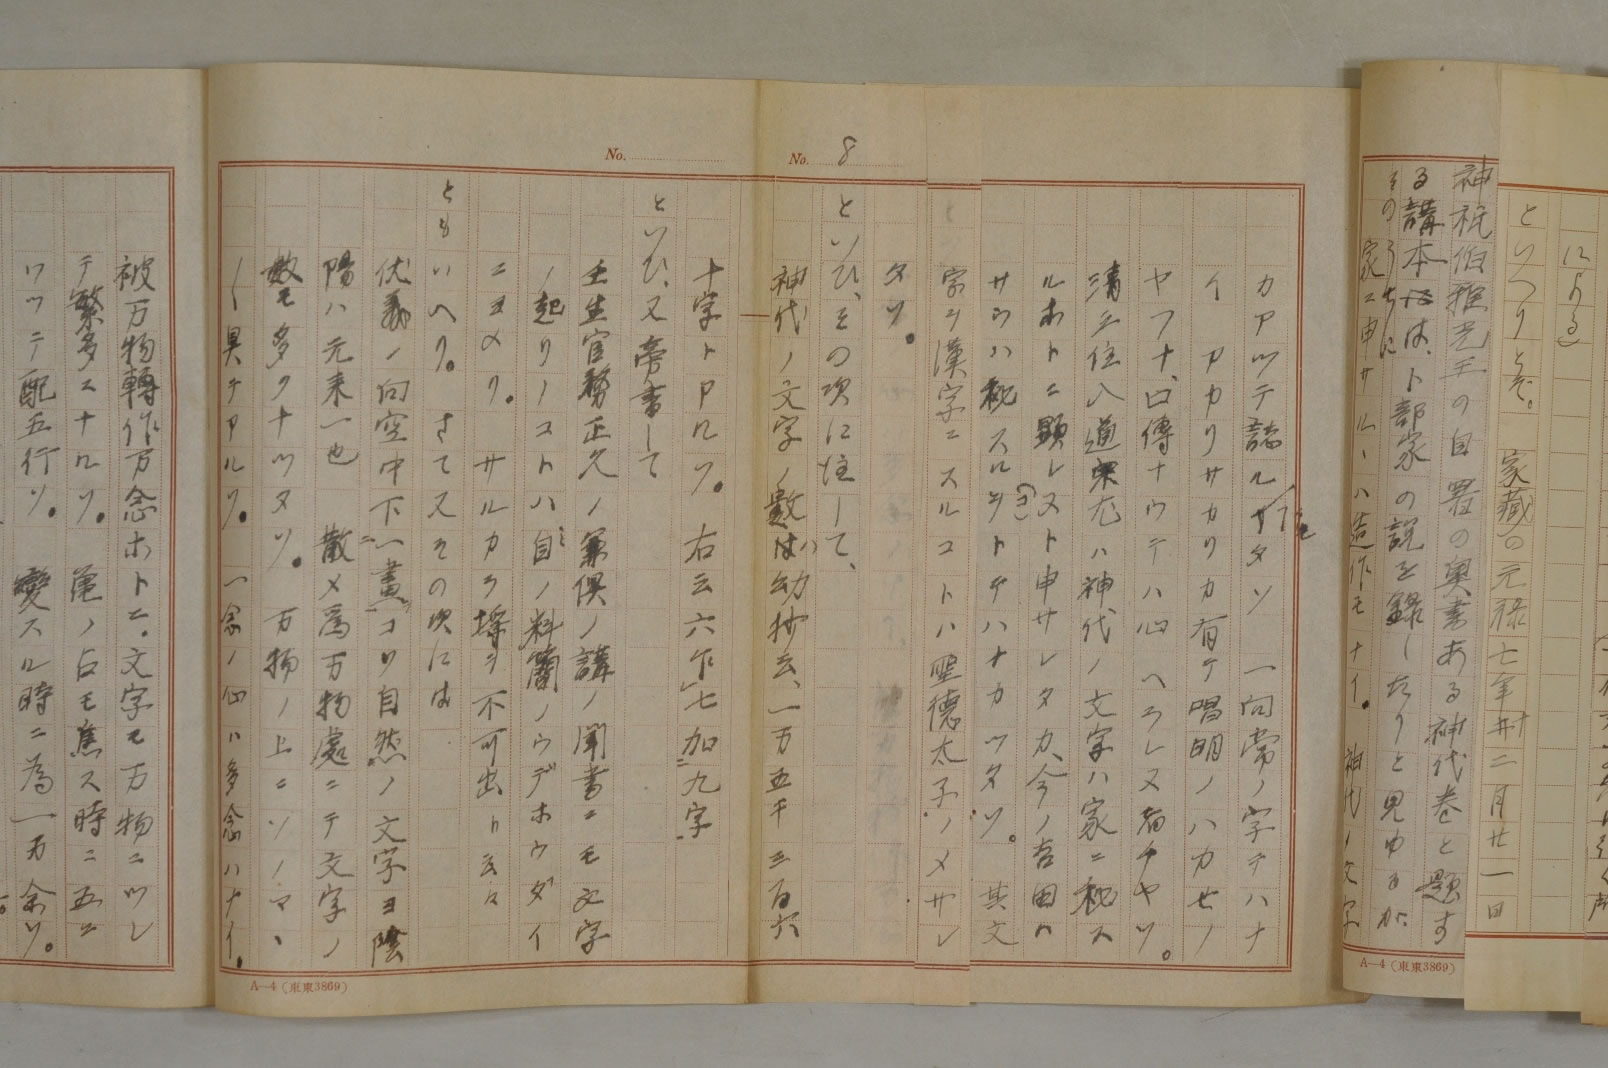 によるﾞ
といへりとぞ。 家藏の元禄七年廿二月廿一日
神祇伯雅光王の自署の奥書ある神代巻と題す
る講本には、卜部家の説を録したりと見ゆるが、
そのうちに
家ニ申サルヽハ造作モナイ。 神代ノ文字
カアツテ誌ル タソ 一向常ノ字テハナ
イ アカリサカリカ有テ唱明ノハカセノ
ヤフナ、口傳ナウテハ心ヘラレヌ者チヤソ。
清三位入道宋尤ハ神代ノ文字ハ家ニ秘ス
ルホトニ顕レヌト申サレタカ、今ノ吉田ハ
サウハ秘スルヿトテハナカツタソ。 其文
字ヲ漢字ニスルコトハ聖徳太子ノメサレ
タソ。
といひ、その次に注して、
神代ノ文字ノ數は幼抄云、一万五千三百六
十字トアルソ。 右云六乍七加九字
といひ、又旁書して
壬生官務正久ノ兼倶ノ講ノ聞書ニモ文字
ノ起リノコトハ自ノ料簡ノウデホウダイ
ニヨメリ。 サルカラ埒ヲ不可出ト云々
ともいへり。 さて又その次には
伏羲ノ向空中下一畫コリ自然ノ文字ヨ陰
陽ハ元来一也 散メ爲万物處ニテ文字ノ
數モ多クナツタソ。 万物ノ上ニソノマヽ
〳〵具テアルソ。 一念ノ心ハ多念ハナイ。
被万物轉作万念ホトニ。文字モ万物ニツレ
テ繁多ニナルソ。 亀ノ占モ焦ス時ニ五ニ
ワツテ配五行ソ。 變スル時ニ為一万余ソ。
No.
No. 8
A—4(東東3869)
A—4(東東3869)